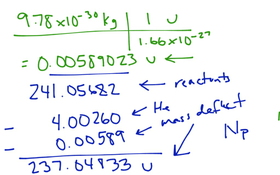 9.78x10⁻³⁰ kg | 1 u
| 1.66x10⁻²⁷
= 0.00589023 u ←
241.05682 ← reactants
- 4.00260 ← He
- 0.00589 ← mass defect
237.04833 u Np